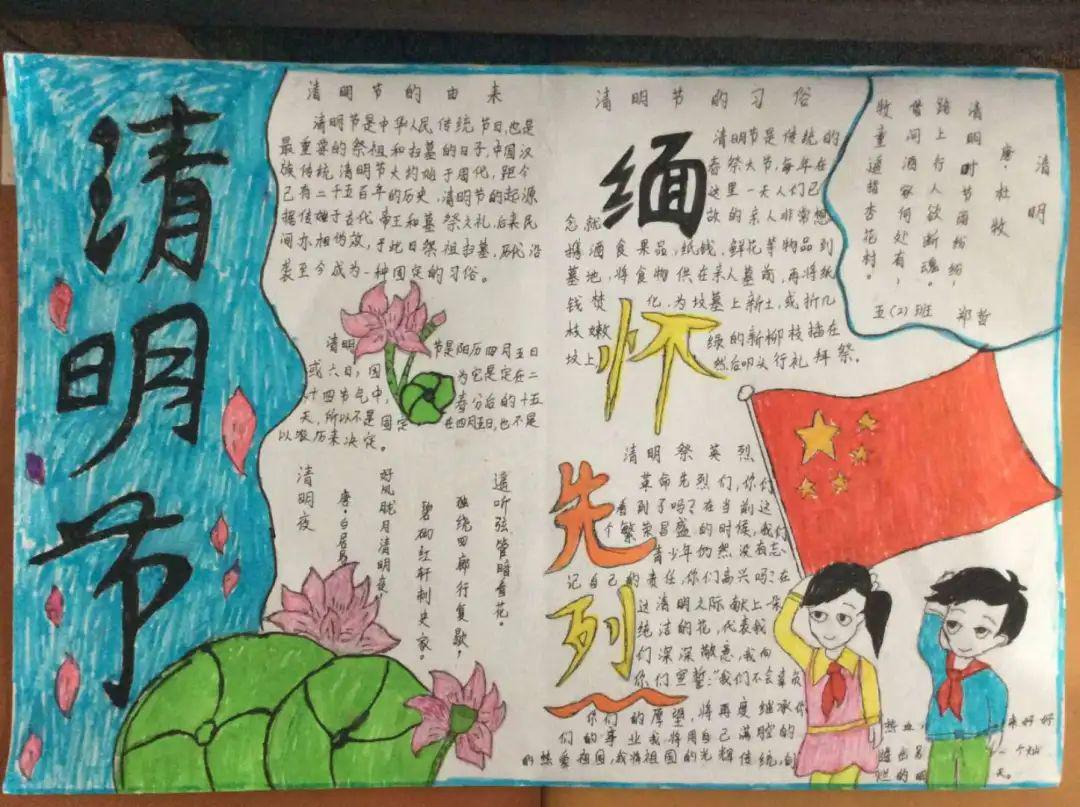 清明节
清明节的由来
清明节是中华人民传统节日,也是
最重要的祭祖和扫墓的日子,中国汉
族传统清明节大约始于周代,距今
已有二千五百年的历史,清明节的起源
据传始于古代帝王和墓祭之礼,后来民
间亦相仿效,于此日祭祖扫墓,历代沿
袭至今成为一种固定的习俗。
清明节是阳历四月五日
或六日,因为它是定在二
十四节气中,春分后的十五
天,所以不是固定在四月五日,也不是
以农历来决定。
清明夜
唐·白居易
好风胧月清明夜,
碧砌红轩刺史家。
独绕回廊行复歇,
遥听弦管暗看花。
清明节的习俗
清明节是传统的
春祭大节,每年在
这里一天人们已
念就故的亲人非常想
携酒食果品,纸钱,鲜花等物品到
墓地,将食物供在亲人墓前,再将纸
钱焚化,为坟墓上新土,或折几
枝嫩绿的新柳枝插在
坟上然后叩头行礼拜祭。
清明
唐·杜牧
清明时节雨纷纷,
路上行人欲断魂。
借问酒家何处有,
牧童遥指杏花村。
五(2)班 郑哲
缅怀先列
清明祭英烈
革命先烈们,你们
看到了吗?在当前这
个繁荣昌盛的时候,我们
青少年仍然没有忘
记自己的责任,你们高兴吗?在
这清明之际献上一朵
纯洁的花,代表我
们深深敬意,我向
你们宣誓:“我们不会辜负
你们的厚望,将再度继承你
们的事业我将用自己满腔的热血
来好好
的热爱祖国,我将祖国的光辉传统,创
造出
一个灿
烂的明天。